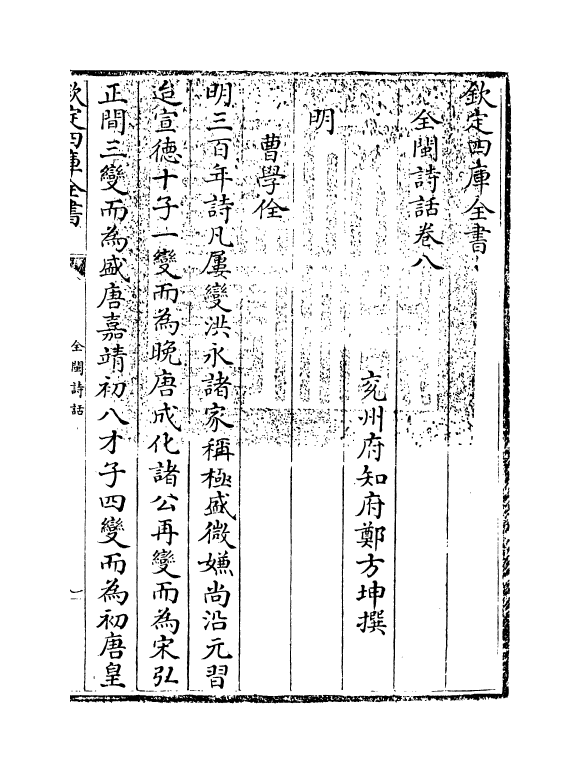 欽定四庫全書
全閩詩話卷八
兖州府知府鄭方坤撰
明
曹學佺
明三百年詩凡屢變洪永諸家稱極盛微嫌尚沿元習
迨宣德十子一變而為晚唐成化諸公再變而為宋弘
正間三變而為盛唐嘉靖初八才子四變而為初唐皇
欽定四庫全書
全閩詩話
一